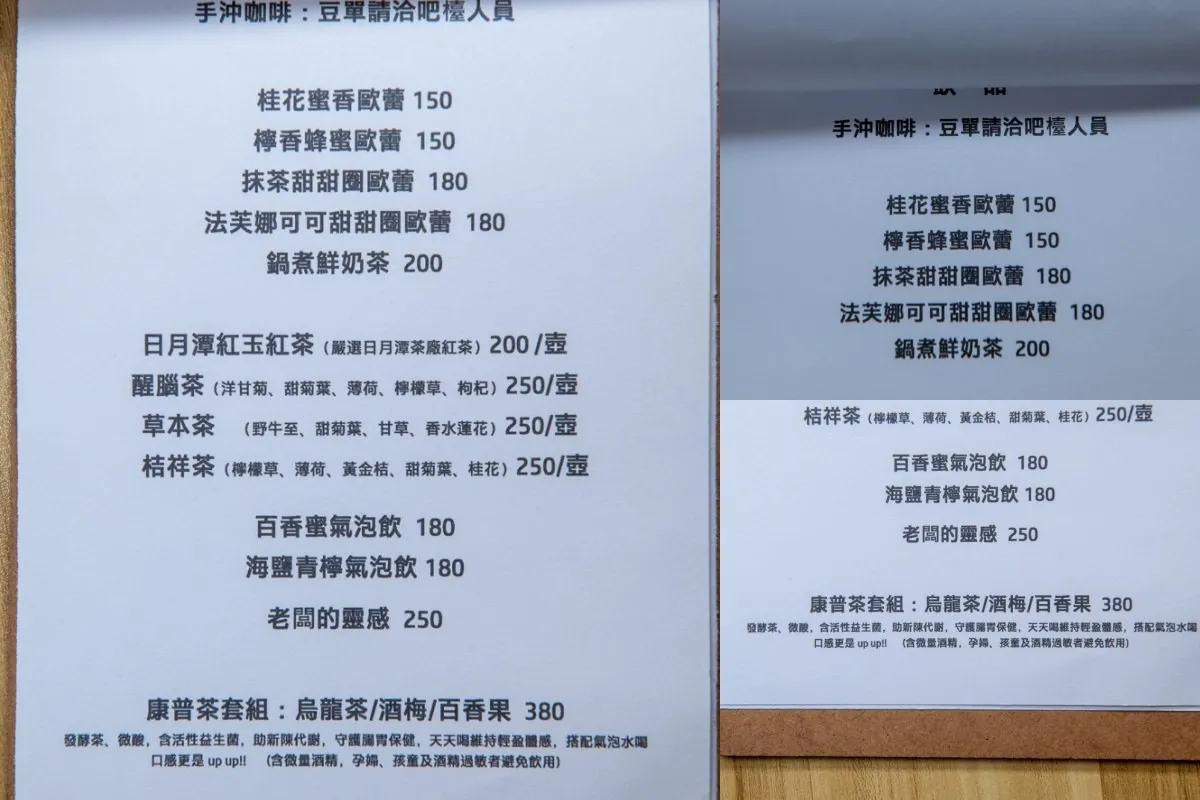 手沖咖啡：豆單請洽吧檯人員
桂花蜜香歐蕾 150
檸香蜂蜜歐蕾 150
抹茶甜甜圈歐蕾 180
法芙娜可可甜甜圈歐蕾 180
鍋煮鮮奶茶 200
日月潭紅玉紅茶（嚴選日月潭茶廠紅茶）200 /壺
醒腦茶（洋甘菊、甜菊葉、薄荷、檸檬草、枸杞）250/壺
草本茶 （野牛至、甜菊葉、甘草、香水蓮花）250/壺
桔祥茶（檸檬草、薄荷、黃金桔、甜菊葉、桂花）250/壺
百香蜜氣泡飲 180
海鹽青檸氣泡飲 180
老闆的靈感 250
康普茶套組：烏龍茶/酒梅/百香果 380
發酵茶、微酸，含活性益生菌，助新陳代謝，守護腸胃保健，天天喝維持輕盈體感，搭配氣泡水喝
口感更是 up up!! （含微量酒精，孕婦、孩童及酒精過敏者避免飲用）
飲 品
手沖咖啡：豆單請洽吧檯人員
桂花蜜香歐蕾 150
檸香蜂蜜歐蕾 150
抹茶甜甜圈歐蕾 180
法芙娜可可甜甜圈歐蕾 180
鍋煮鮮奶茶 200
桔祥茶（檸檬草、薄荷、黃金桔、甜菊葉、桂花）250/壺
百香蜜氣泡飲 180
海鹽青檸氣泡飲 180
老闆的靈感 250
康普茶套組：烏龍茶/酒梅/百香果 380
發酵茶、微酸，含活性益生菌，助新陳代謝，守護腸胃保健，天天喝維持輕盈體感，搭配氣泡水喝
口感更是 up up!! （含微量酒精，孕婦、孩童及酒精過敏者避免飲用）